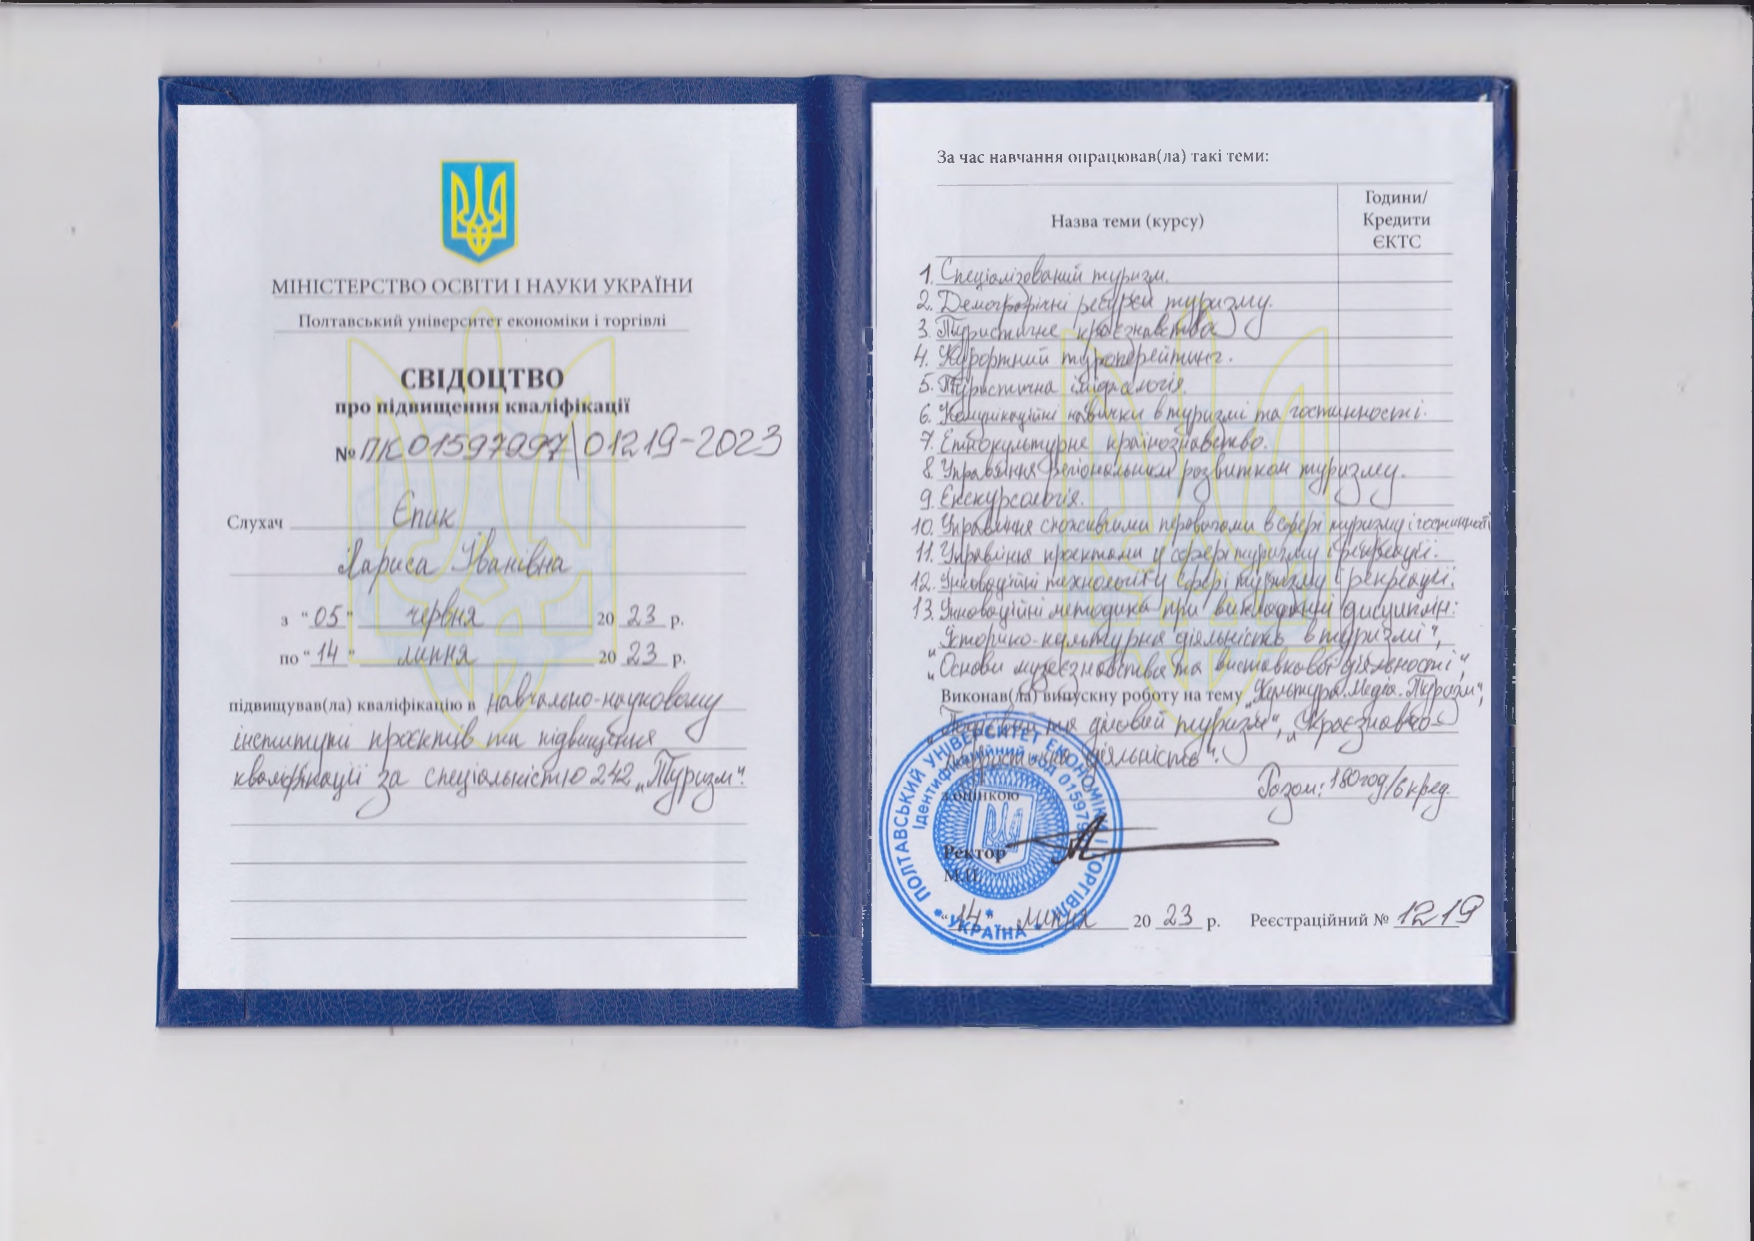 МІНІСТЕРСТВО ОСВІТИ І НАУКИ УКРАЇНИ
Полтавський університет економіки і торгівлі
СВІДОЦТВО
про підвищення кваліфікації
№ ПК 01597997/01219-2023
Слухач Єпик
Лариса Іванівна
з "05" червня 2023 р.
по "14" липня 2023 р.
підвищував(ла) кваліфікацію в навчально-науковому
інституті проєктів та підвищення
кваліфікації за спеціальністю 242 „Туризм".
За час навчання опрацював(ла) такі теми:
Назва теми (курсу)
Години/
Кредити
ЄКТС
1. Спеціалізований туризм.
2. Демографічні ресурси туризму.
3. Туристичне краєзнавство
4. Курортний туроперейтинг.
5. Туристична іміджелогія.
6. Комунікаційні навички в туризмі та гостинності.
7. Етнокультурне країнознавство.
8. Управління регіональним розвитком туризму.
9. Екскурсологія.
10. Управління в сфері туризму і гостинності
11. Управління проєктами у сфері туризму і рекреації.
12. Інноваційні технології у сфері туризму і рекреації.
13. Інноваційні методика при викладанні дисциплін:
„Історично-культурна діяльність в туризмі",
„Основи музеєзнавства та виставкової діяльності",
Виконав(ла) випускну роботу на тему „Культура. Медіа. Туризм",
„Подієвий та діловий туризм", „Краєзнавчо-
туристична діяльність".
з оцінкою
Разом: 180год/6кред.
Ректор
М.П.
"14" липня 2023 р. Реєстраційний № 1219
ПОЛТАВСЬКИЙ УНІВЕРСИТЕТ ЕКОНОМІКИ І ТОРГІВЛІ
* УКРАЇНА *
Ідентифікаційний код